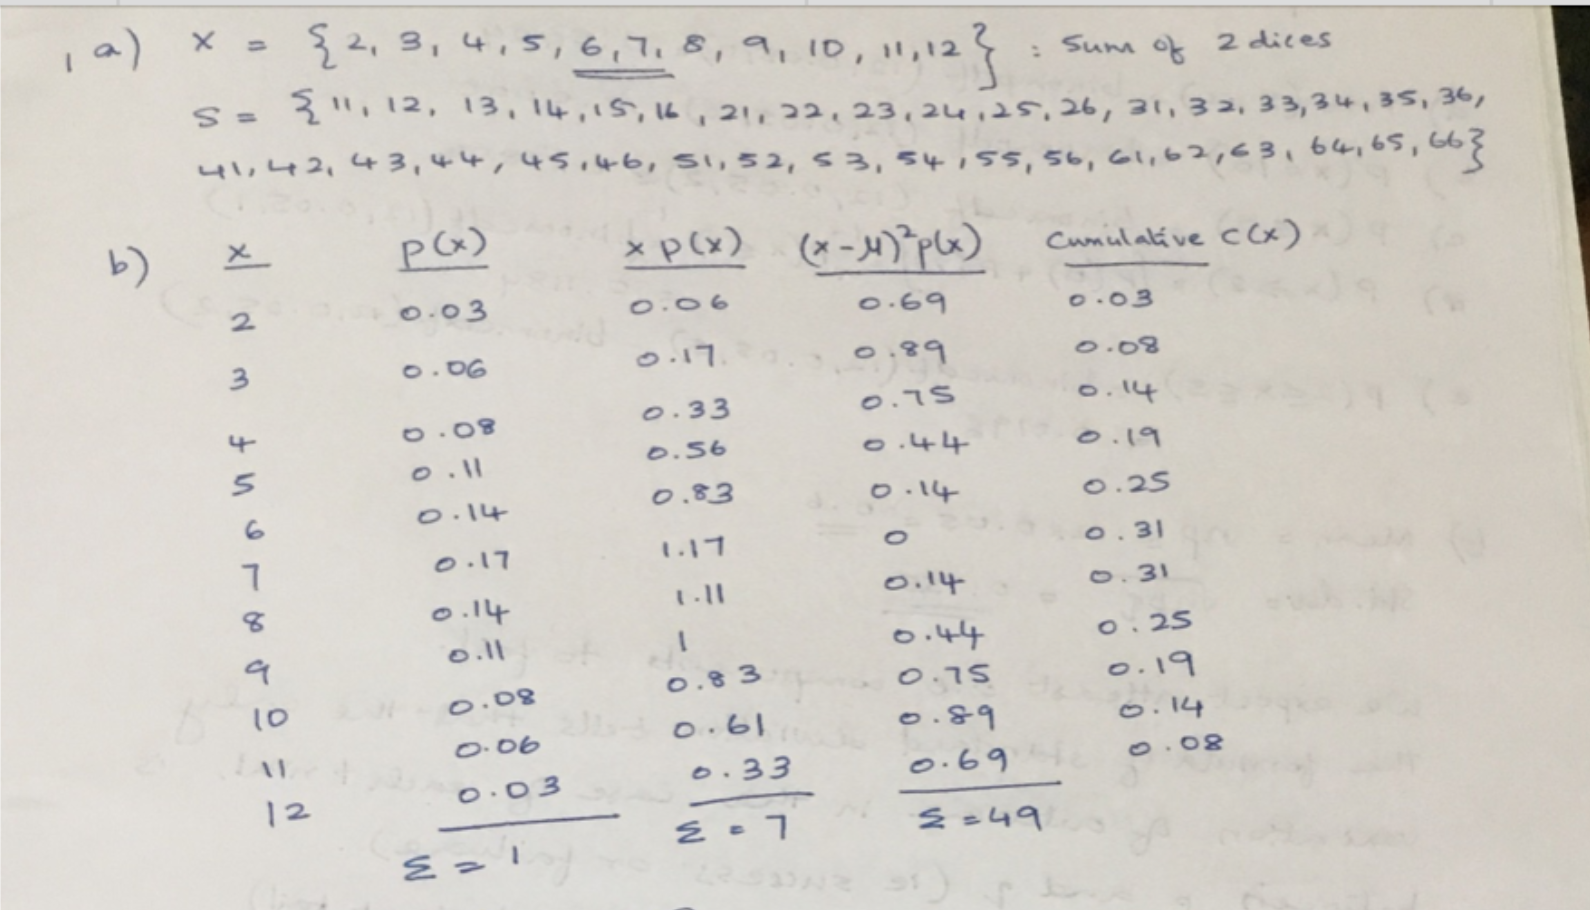 1 a) X = {2, 3, 4, 5, 6, 7, 8, 9, 10, 11, 12} : Sum of 2 dices
S = {11, 12, 13, 14, 15, 16, 21, 22, 23, 24, 25, 26, 31, 32, 33, 34, 35, 36,
41, 42, 43, 44, 45, 46, 51, 52, 53, 54, 55, 56, 61, 62, 63, 64, 65, 66}
b) x p(x) x p(x) (x-μ)²p(x) Cumulative C(x)
2 0.03 0.06 0.69 0.03
3 0.06 0.17 0.89 0.08
4 0.08 0.33 0.75 0.14
5 0.11 0.56 0.44 0.19
6 0.14 0.83 0.14 0.25
7 0.17 1.17 0 0.31
8 0.14 1.11 0.14 0.31
9 0.11 1 0.44 0.25
10 0.08 0.83 0.75 0.19
11 0.06 0.61 0.89 0.14
12 0.03 0.33 0.69 0.08
Σ = 1 Σ = 7 Σ = 49